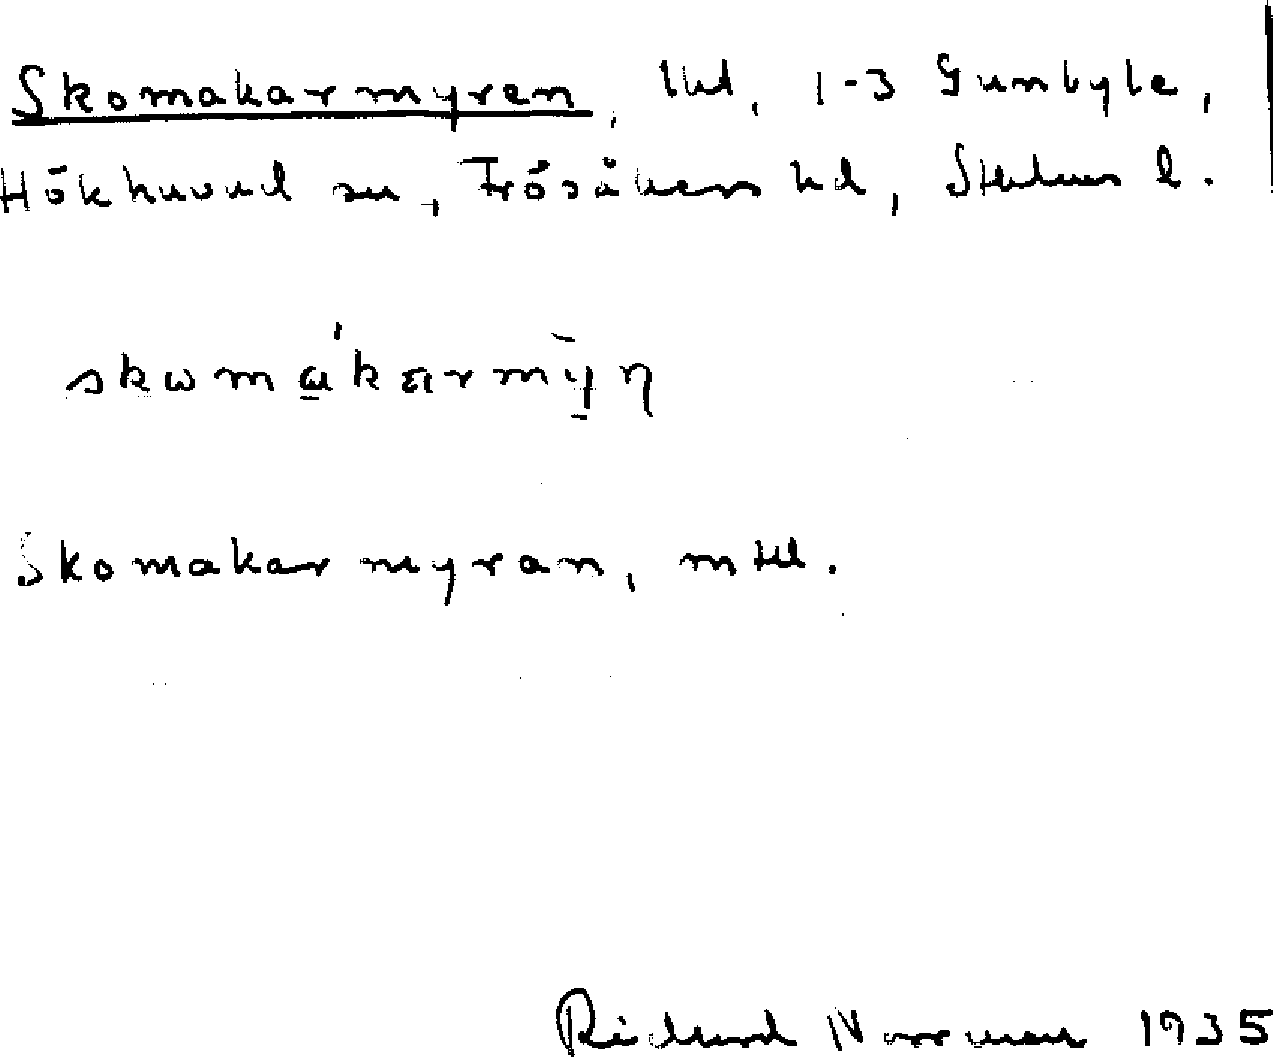 Skomakarmyren, 1-3 Gunbyle,
Hökhuvud sn, Frösåkers hd, Sthlms l.
skωmakarmyn
Skomakarmyran, mtkl.
Richard Norrman 1935